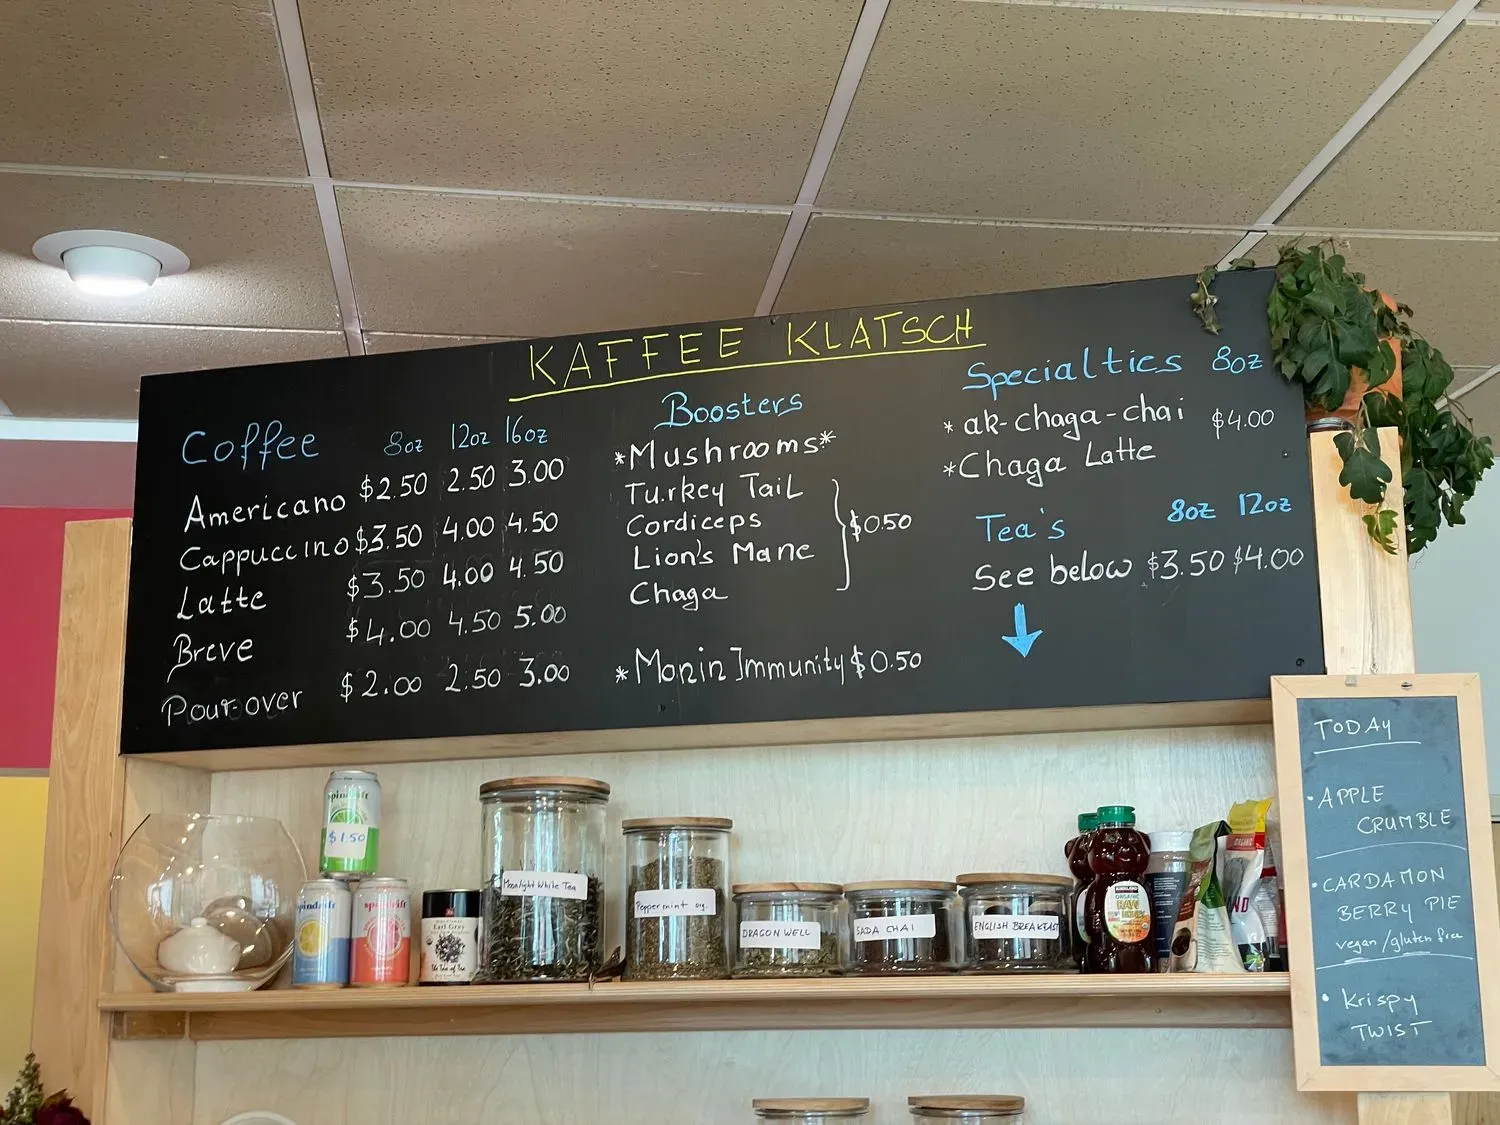 KAFFEE KLATSCH
Coffee 8oz 12oz 16oz
Americano $2.50 2.50 3.00
Cappuccino $3.50 4.00 4.50
Latte $3.50 4.00 4.50
Breve $4.00 4.50 5.00
Pour over $2.00 2.50 3.00
Boosters
*Mushrooms*
Turkey Tail
Cordiceps
Lion's Mane
Chaga
$0.50
*Monin Immunity $0.50
Specialties 8oz
*ak-chaga-chai $4.00
*Chaga Latte
Tea's 8oz 12oz
See below $3.50 $4.00
TODAY
•APPLE
CRUMBLE
•CARDAMON
BERRY PIE
vegan/gluten free
•Krispy
TWIST
spindrift
$1.50
spindrift
spindrift
Earl Grey
Moonlight White Tea
Peppermint org.
DRAGON WELL
SADA CHAI
ENGLISH BREAKFAST
KIRKLAND
ORGANIC
RAW
HONEY